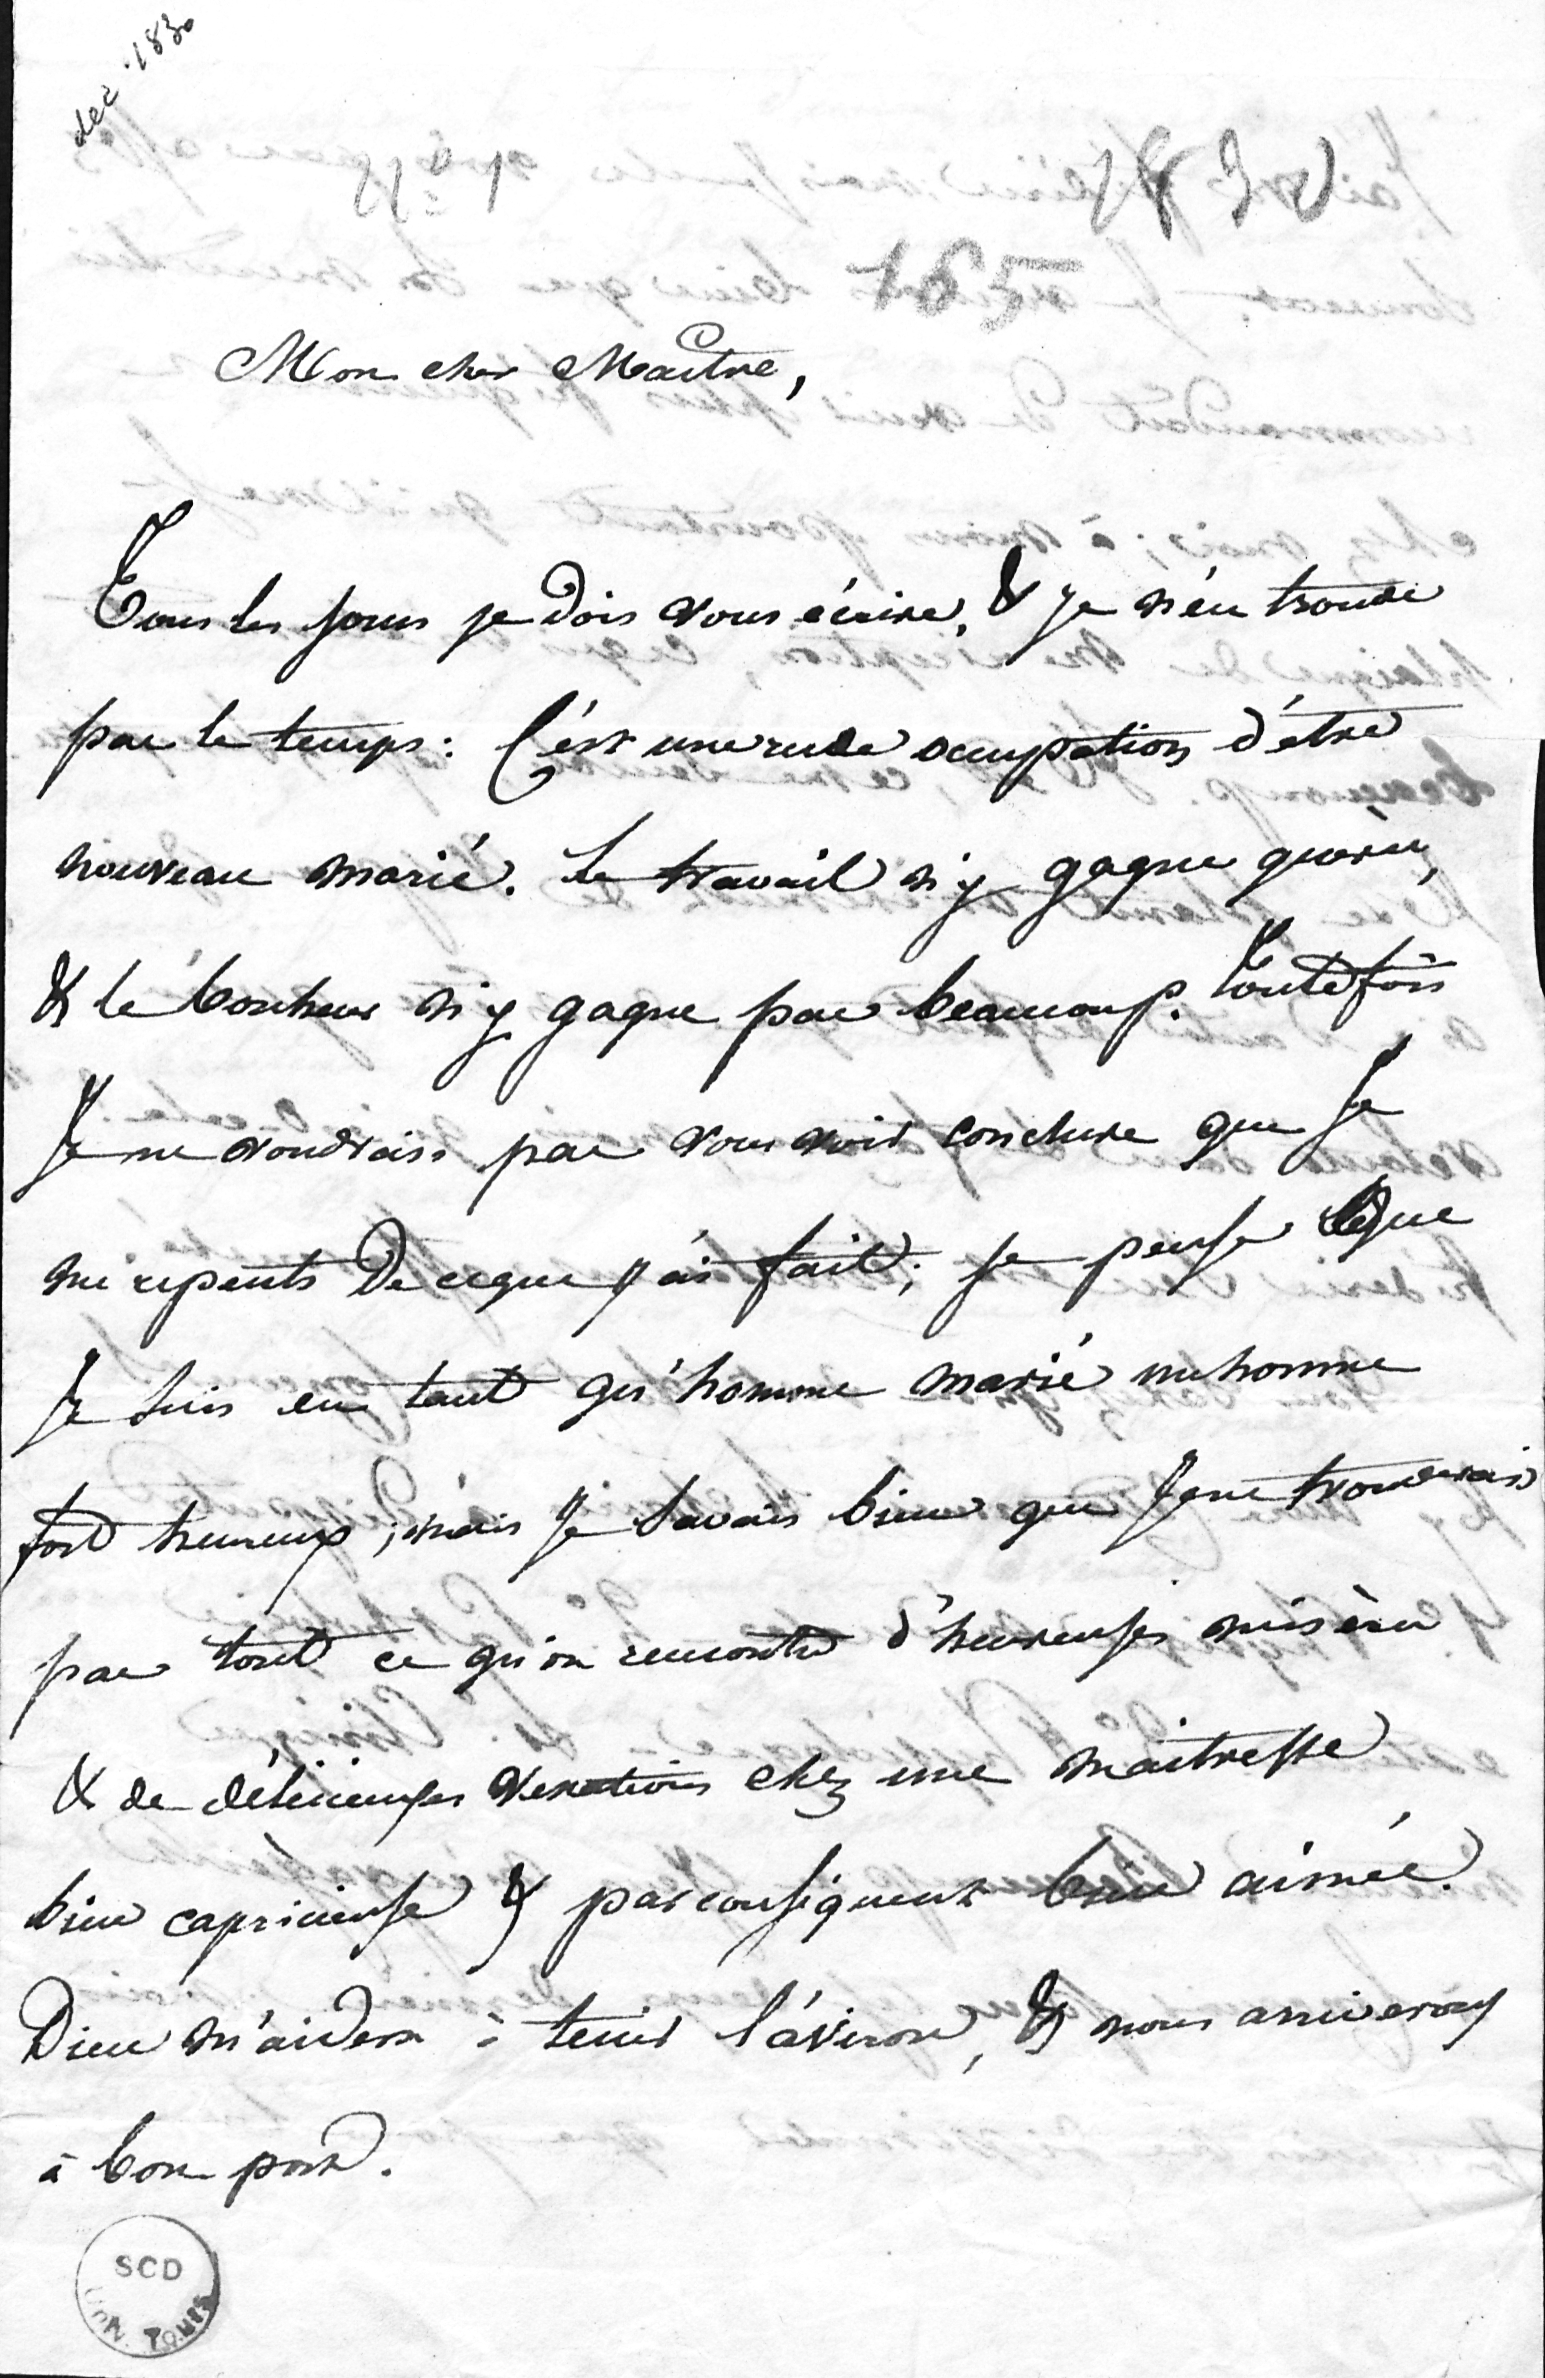 dec. 1830
Mon cher Maître,
Tous les jours je dois vous écrire, & je n'en trouve
pas le temps: C'est une rude occupation d'être
nouveau marié. le travail n'y gagne guères,
& le bonheur n'y gagne pas beaucoup. Toutefois
Je ne voudrais pas vous voir conclure que Je
me repents De ceque j'ai fait; je pense que
Je suis en tant qu'homme marié un homme
fort heureux; mais Je savais bien que Je ne trouverais
pas tout ce qu'on rencontre d'heureuses misères
& de délicieuses vexations chez une maitresse
bien capricieuse & par conséquent bien aimée.
Dieu m'aidera à tenir l'aviron, & nous arriverons
à bon port.
SCD
TOURS